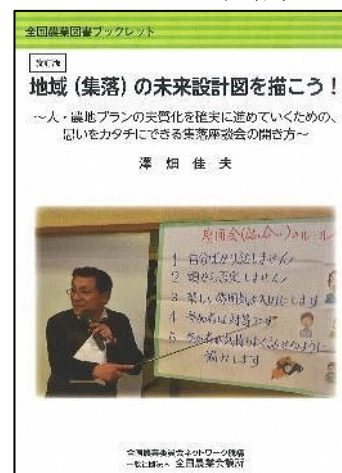 全国農業図書ブックレット
改訂版
地域(集落)の未来設計図を描こう!
~人・農地プランの実質化を確実に進めていくための、
思いをカタチにできる集落座談会の開き方~
澤畑佳夫
座談会(話し合い)のルール
1 自分ばかり話しません
2 頭から否定しません
3 楽しい雰囲気を大切にします
4 参加者は対等です
5 参加者が気持ちよく話せるように
協力します
全国農業委員会ネットワーク機構
一般社団法人 全国農業会議所